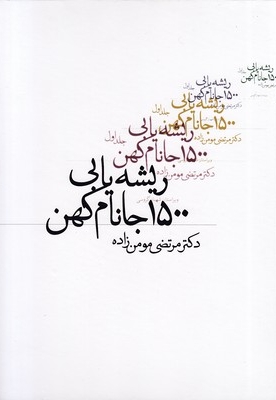 ریشه یابی
ریشه یابی
جلد اول
۱۵۰۰ جانام کهن
ریشه یابی
جلد اول
۱۵۰۰ جانام کهن
ریشه یابی
جلد اول
۱۵۰۰ جانام کهن
دکتر مرتضی مومن زاده
ریشه یابی
۱۵۰۰ جانام کهن
دکتر مرتضی مومن زاده